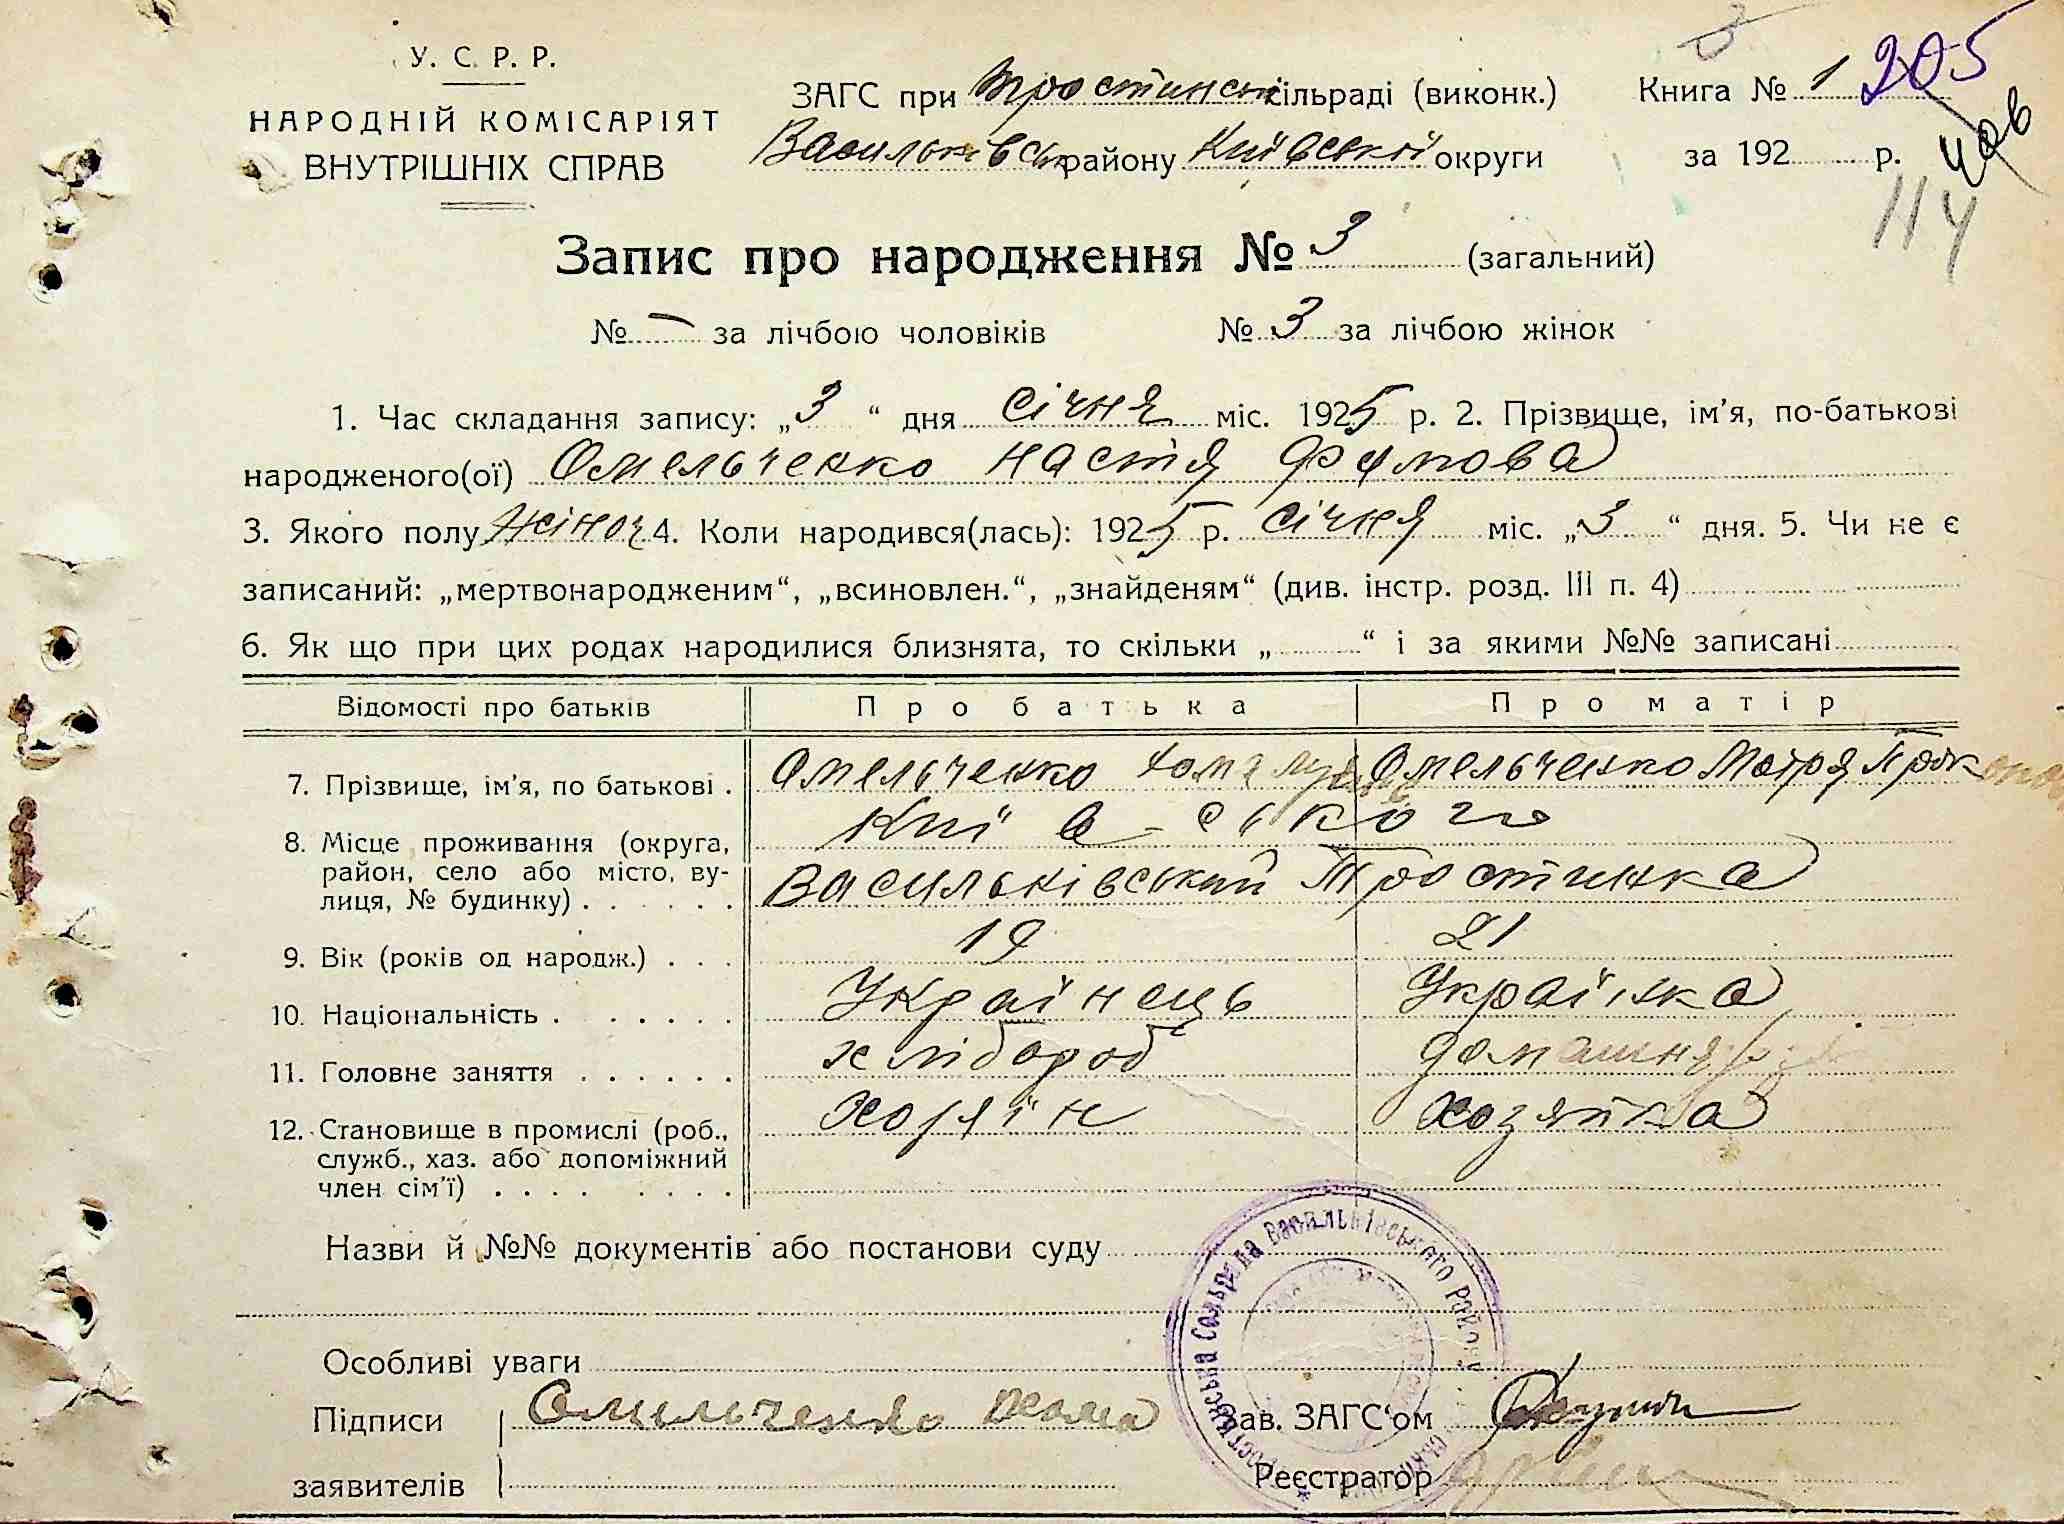 У. С. Р. Р.
НАРОДНІЙ КОМІСАРІЯТ
ВНУТРІШНІХ СПРАВ
ЗАГС при Тростинськ сільраді (виконк.)
Васильківськ району Київської округи
Книга № 1 205
за 192 р.
114
Запис про народження № 3 (загальний)
№ – за лічбою чоловіків № 3 за лічбою жінок
1. Час складання запису: „3“ дня Січня міс. 1925 р. 2. Прізвище, ім’я, по-батькові
народженого(ої) Омельченко Настя Фомова
3. Якого полу жіноч 4. Коли народився(лась): 1925 р. Січня міс. „3“ дня. 5. Чи не є
записаний: „мертвонародженим“, „всиновлен.“, „знайденям“ (див. інстр. розд. III п. 4)
6. Як що при цих родах народилися близнята, то скільки „ “ і за якими №№ записані
Відомості про батьків Про батька Про матір
7. Прізвище, ім’я, по батькові . Омельченко Хома Омельченко Мотря Проко
8. Місце проживання (округа, Київ-ського
район, село або місто, ву-
лиця, № будинку) . . . . . . Васильківський Тростинка
9. Вік (років од народж.) . . . 19 21
10. Національність . . . . . . Українець Українка
11. Головне заняття . . . . . . хлібороб домашня
12. Становище в промислі (роб., Хозяїн Хозяйка
служб., хаз. або допоміжний
член сім’ї) . . . . . . . .
Назви й №№ документів або постанови суду
Особливі уваги
Підписи Омельченко Хома
Зав. ЗАГС‘ом
заявителів
Реєстратор
Тростинська Сільрада Васильківського Району